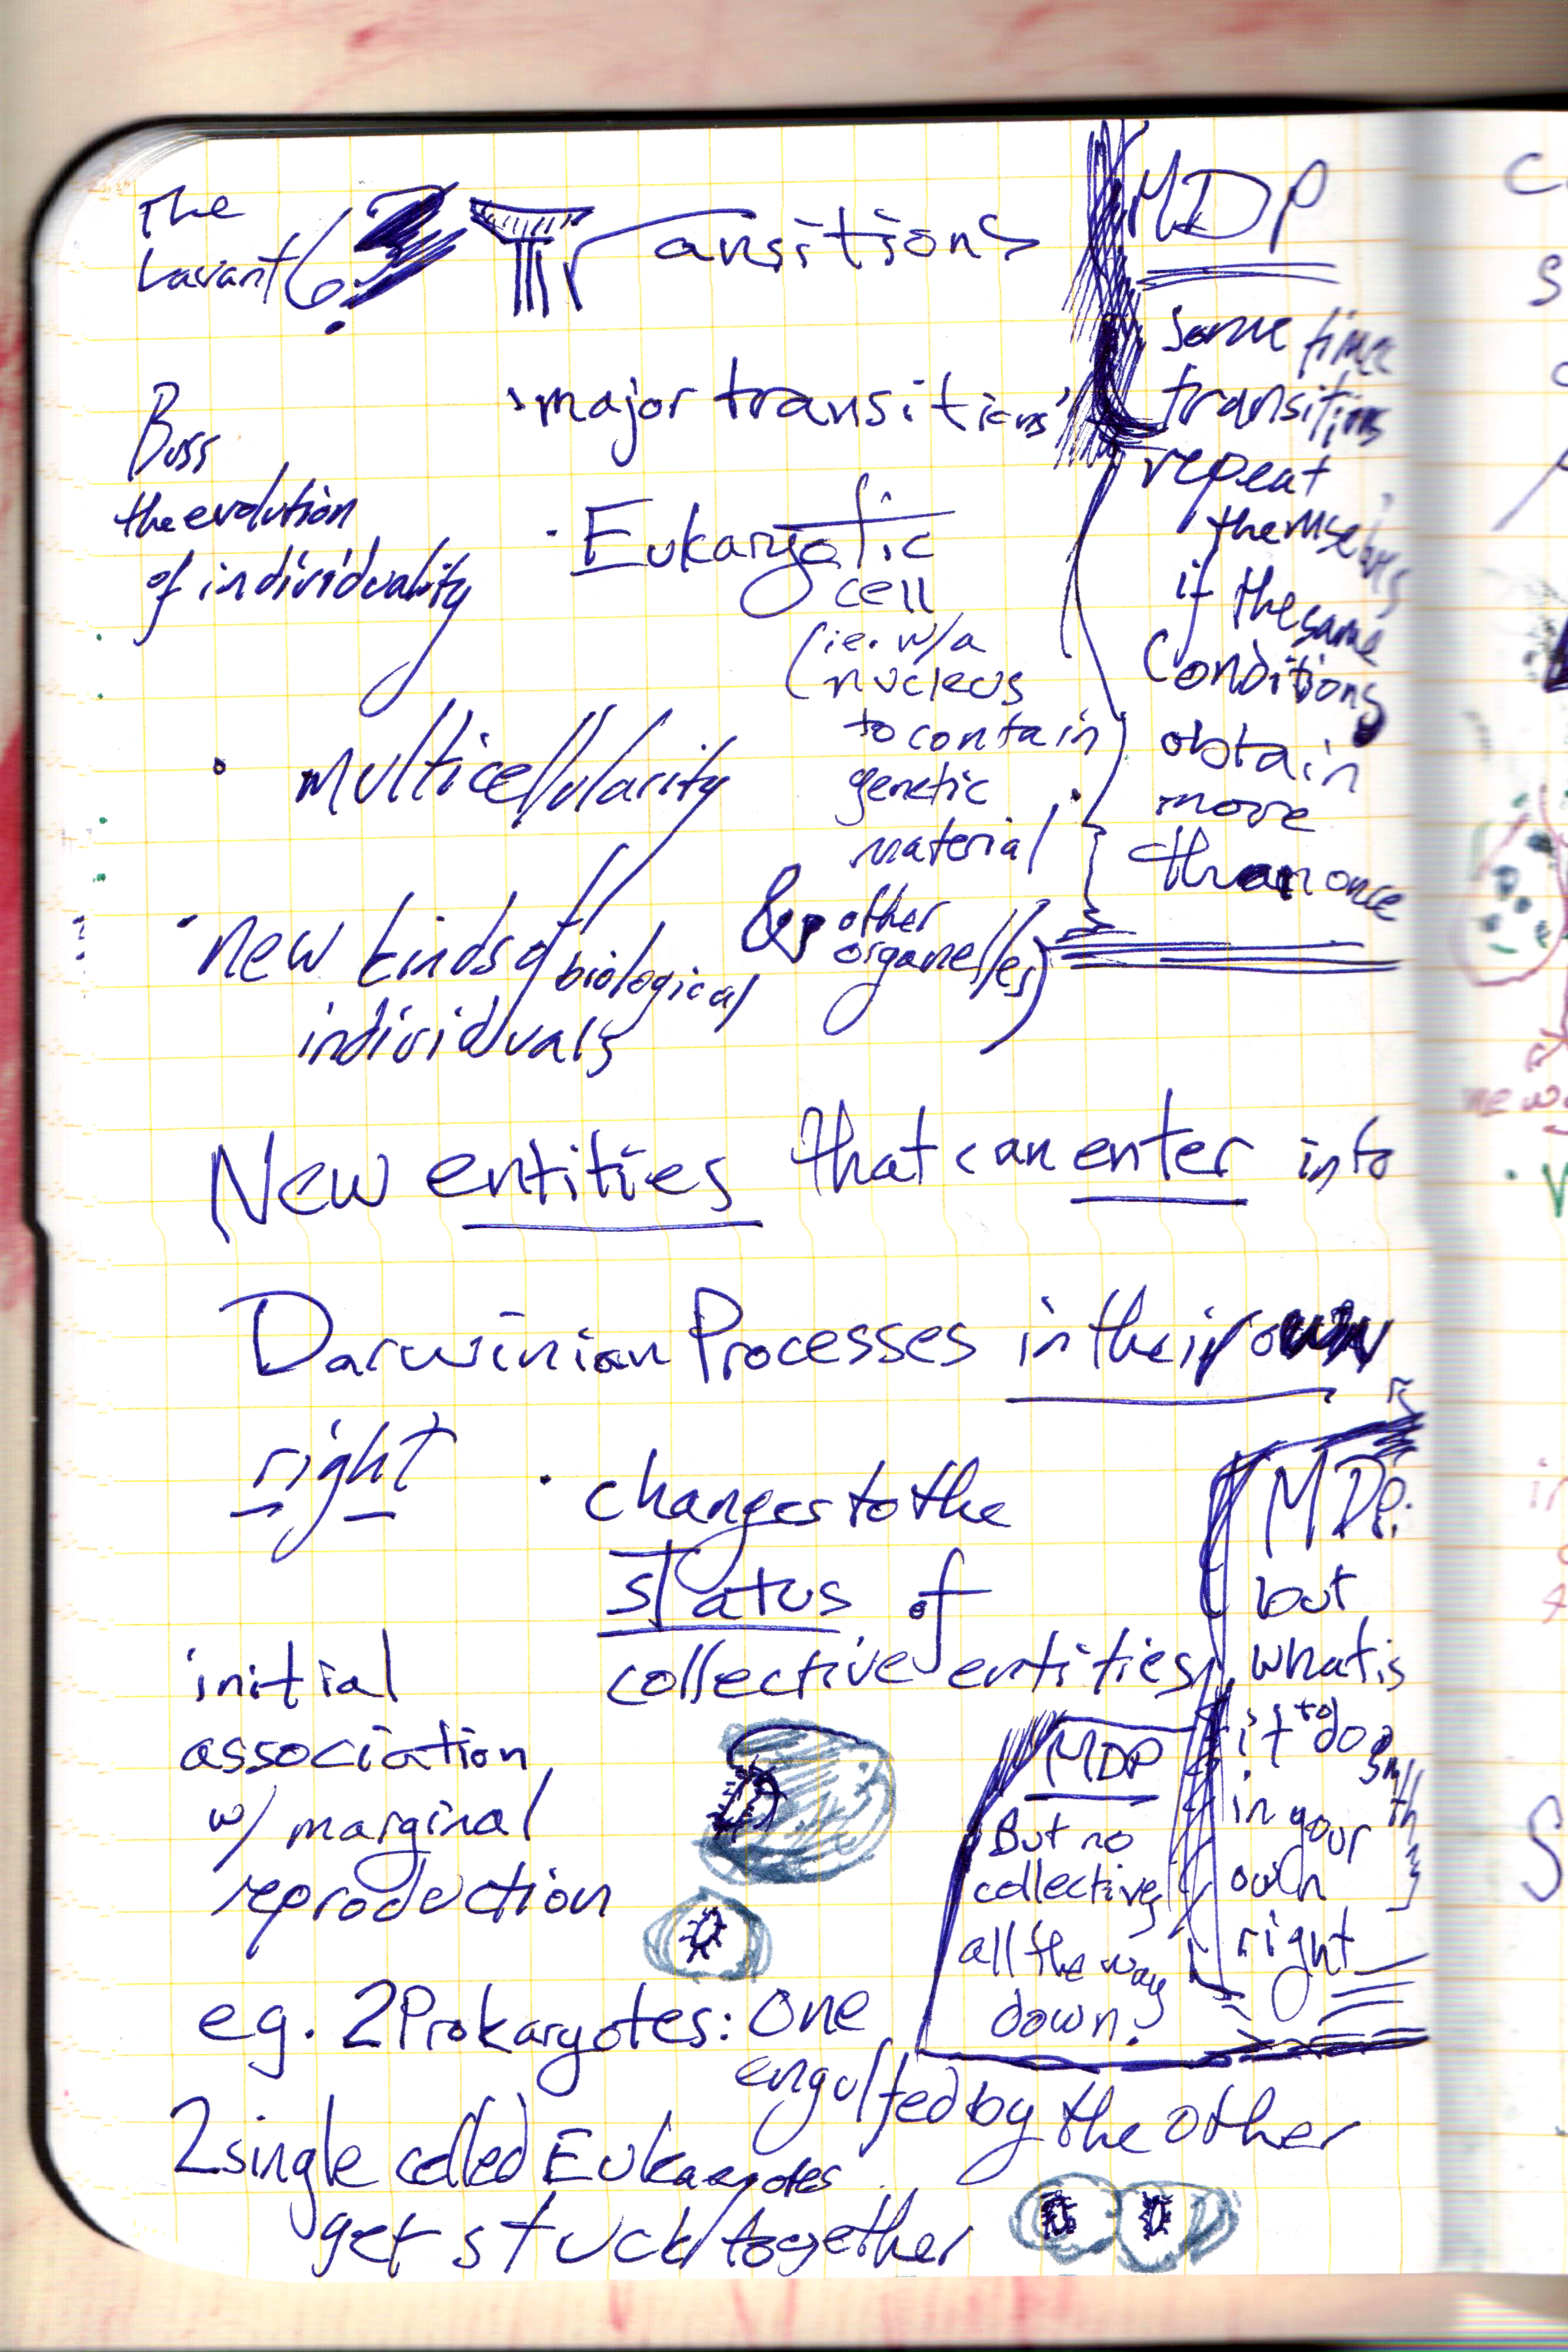 The
Transitions
MDP
'major transitions'
Buss
the evolution
of individuality
· Eukaryotic
cell
(ie. w/a
nucleus
to contain
genetic
material
& other
organelles)
some time
transitions
repeat
themselves
if the same
conditions
obtain
more
than once
· multicellularity
· new kinds of biological
individuals
New entities that can enter into
Darwinian Processes in their own
right
· changes to the
status of
collective entities
MDP:
but
what is
it to do
smth
in your
own
right
MDP
But no
collectives
all the way
down.
initial
association
w/ marginal
reproduction
eg. 2 Prokaryotes: One
engulfed by the other
2 single celled Eukaryotes
get stuck together